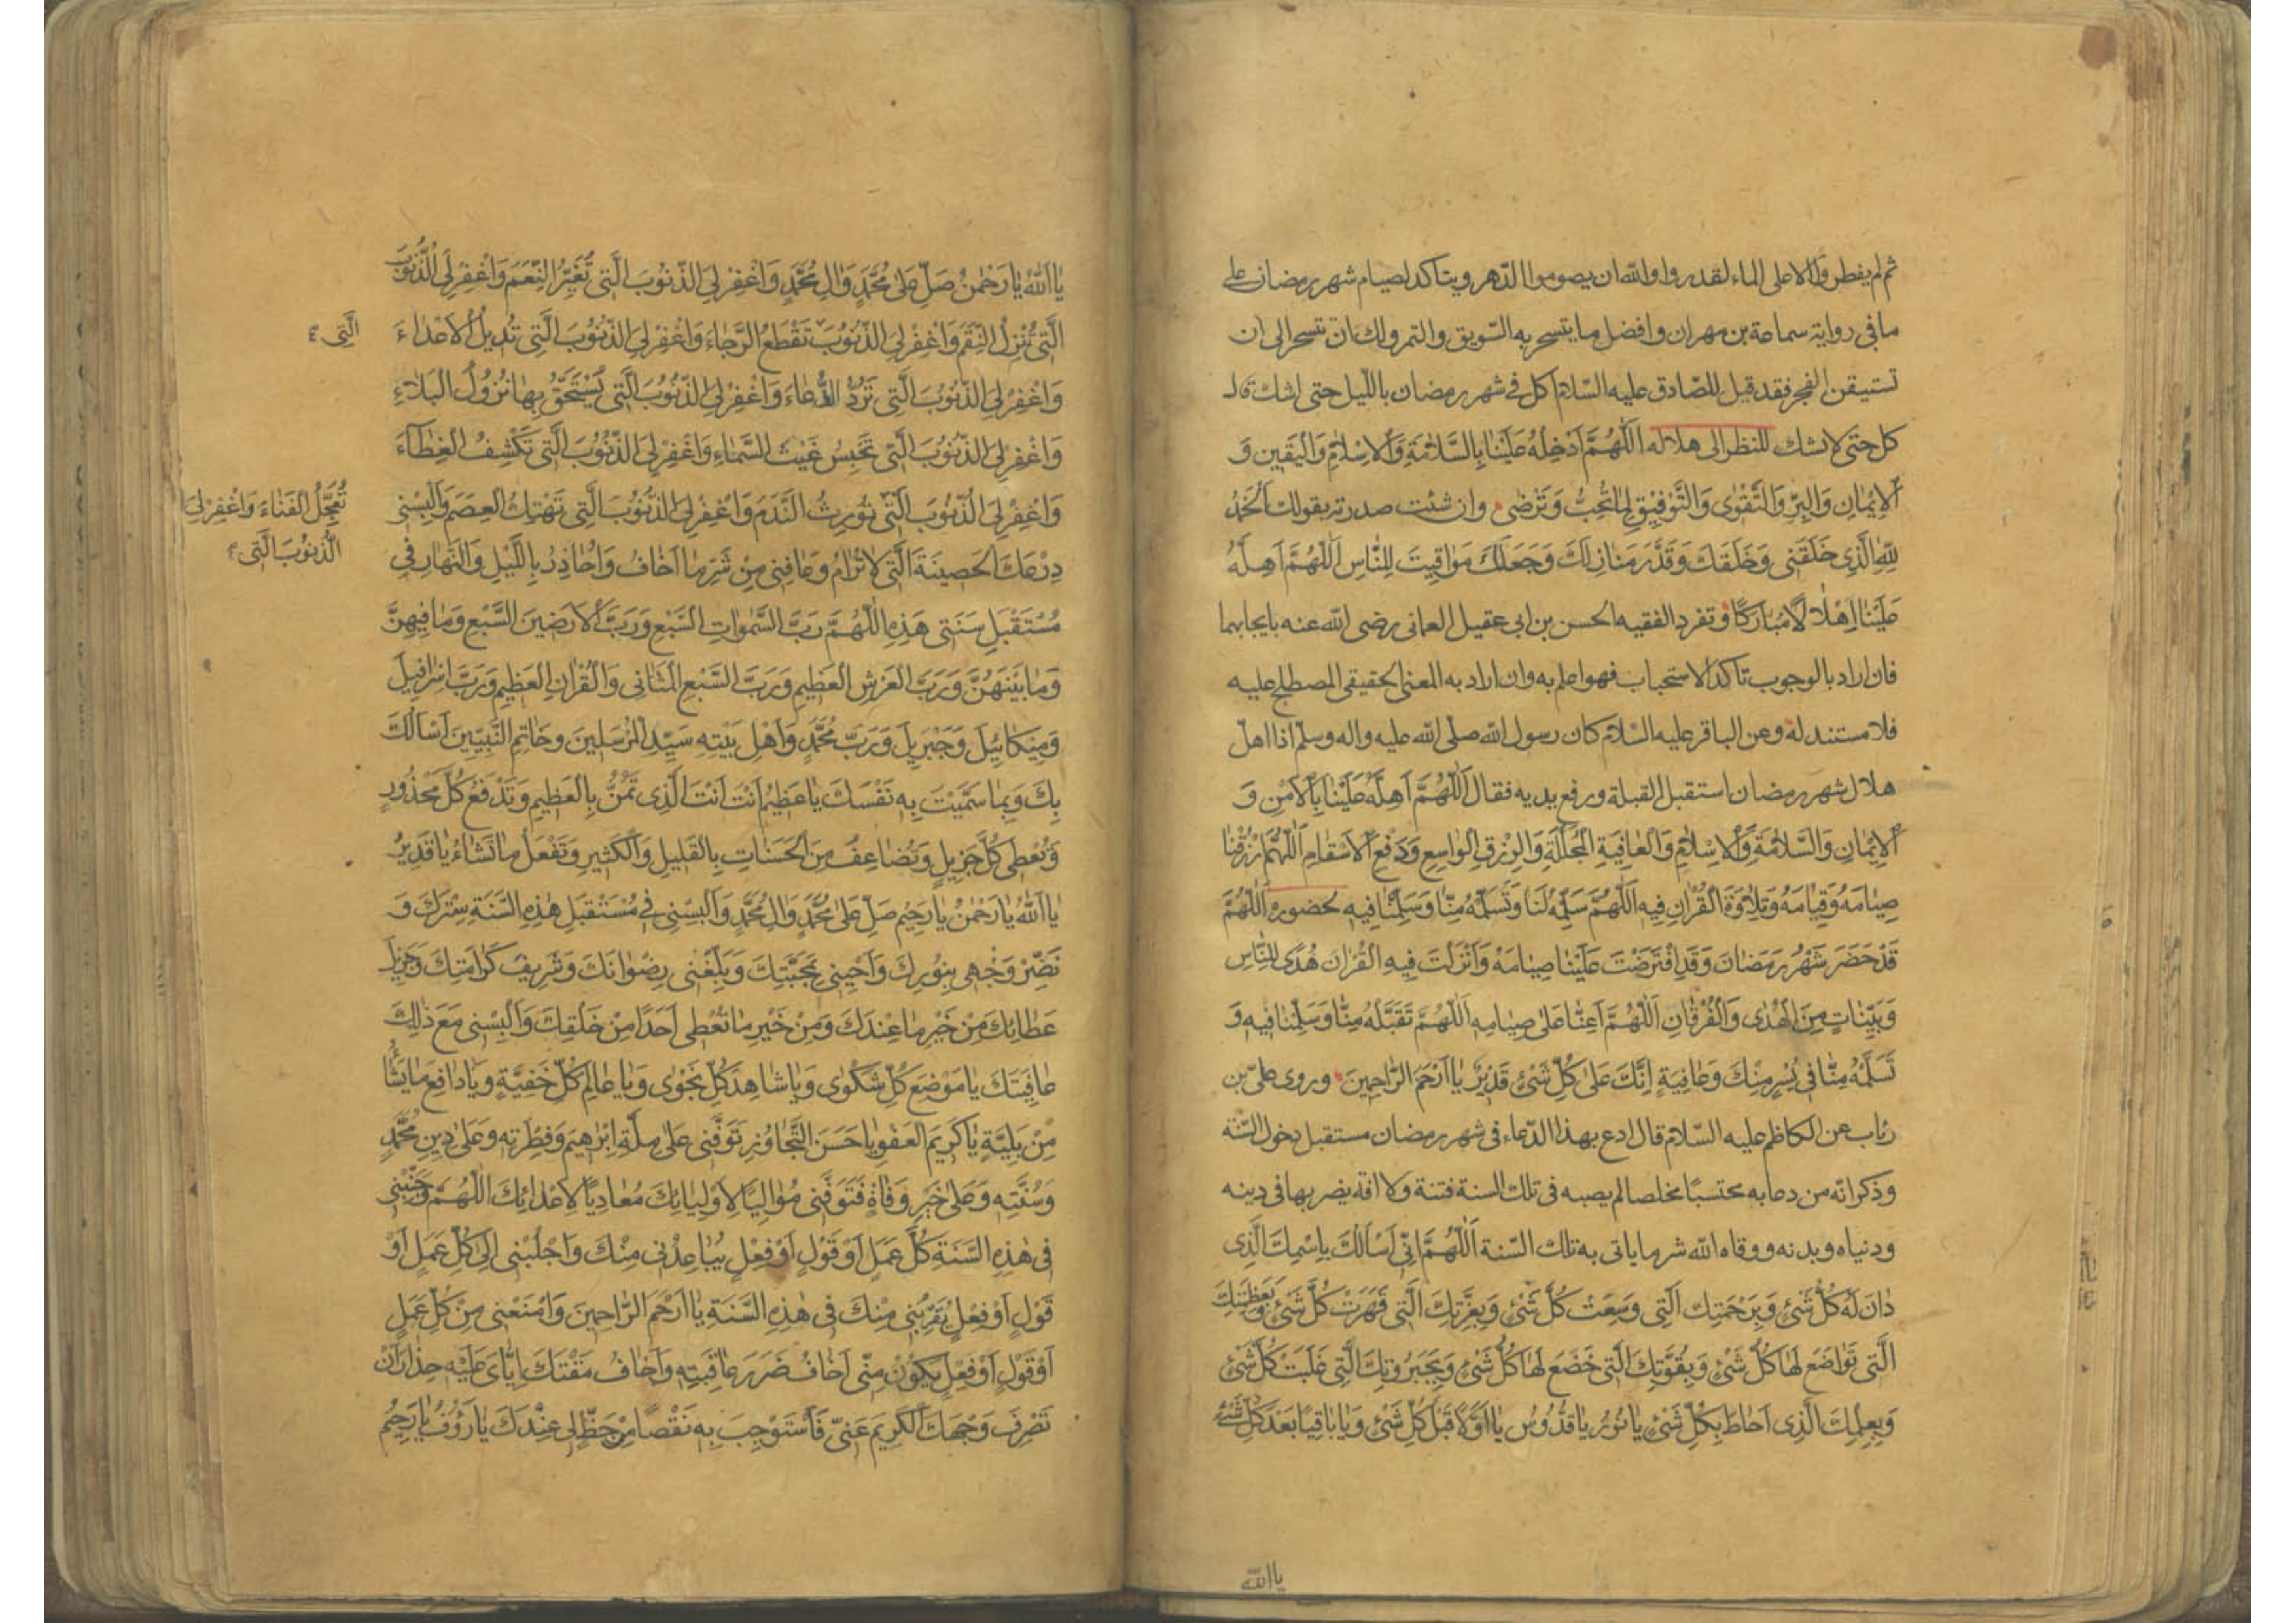 ثم لم يفطروا الا على الماء لقدروا والله ان يصوموا الدّهر ويتاكد لصيام شهر رمضان على
ما فى رواية سماعة بن مهران وافضل ما يتسحر به السّويق والتمر ولك ان تتسحر الى ان
تستيقن الفجر فقد قيل للصّادق عليه السّلام اكل فى شهر رمضان باللّيل حتى اشك قال
كل حتى لا تشك للنظر الى هلاله اَللّٰهُمَّ اَدْخِلْهُ عَلَيْنٰا بِالسَّلاٰمَةِ وَالْاِسْلاٰمِ وَالْيَقِينِ وَ
الْاِيْمٰانِ وَالْبِرِّ وَالتَّقْوٰى وَالتَّوْفِيْقِ لِمٰا تُحِبُّ وَتَرْضٰى وان شئت صدرته بقولك اَلْحَمْدُ
لِلّٰهِ الَّذِى خَلَقَنِى وَخَلَقَكَ وَقَدَّرَ مَنٰازِلَكَ وَجَعَلَكَ مَوٰاقِيتَ لِلنّٰاسِ اَللّٰهُمَّ اَهِلَّهُ
عَلَيْنٰا اِهْلاٰلًا مُبٰارَكًا وتفرد الفقيه الحسن بن ابى عقيل العمانى رضى الله عنه بايجابهما
فان اراد بالوجوب تاكد الاستحباب فهو اعلم به وان اراد به المعنى الحقيقى المصطلح عليه
فلا مستند له وعن الباقر عليه السّلام كان رسول الله صلّى الله عليه واله وسلّم اذا اهلّ
هلال شهر رمضان استقبل القبلة ورفع يديه فقال اَللّٰهُمَّ اَهِلَّهُ عَلَيْنٰا بِالْاَمْنِ وَ
الْاِيْمٰانِ وَالسَّلاٰمَةِ وَالْاِسْلاٰمِ وَالْعٰافِيَةِ الْمُجَلَّلَةِ وَالرِّزْقِ الْوٰاسِعِ وَدَفْعِ الْاَسْقٰامِ اَللّٰهُمَّ ارْزُقْنٰا
صِيٰامَهُ وَقِيٰامَهُ وَتِلاٰوَةَ الْقُرْاٰنِ فِيهِ اَللّٰهُمَّ سَلِّمْهُ لَنٰا وَتَسَلَّمْهُ مِنّٰا وَسَلِّمْنٰا فِيهِ لحضوره اَللّٰهُمَّ
قَدْ حَضَرَ شَهْرُ رَمَضٰانَ وَقَدِ افْتَرَضْتَ عَلَيْنٰا صِيٰامَهُ وَاَنْزَلْتَ فِيهِ الْقُرْاٰنَ هُدًى لِلنّٰاسِ
وَبَيِّنٰاتٍ مِنَ الْهُدٰى وَالْفُرْقٰانِ اَللّٰهُمَّ اَعِنّٰا عَلىٰ صِيٰامِهِ اَللّٰهُمَّ تَقَبَّلْهُ مِنّٰا وَسَلِّمْنٰا فِيهِ وَ
تَسَلَّمْهُ مِنّٰا فِى يُسْرٍ مِنْكَ وَعٰافِيَةٍ اِنَّكَ عَلىٰ كُلِّ شَىْءٍ قَدِيْرٌ يٰا اَرْحَمَ الرّٰاحِمِينَ وروى علىّ بن
رئاب عن الكاظم عليه السّلام قال ادع بهذا الدّعاء فى شهر رمضان مستقبل دخول السّنة
وذكر انّه من دعا به محتسبًا مخلصا لم يصبه فى تلك السنة فتنة ولا افة يضر بها فى دينه
ودنياه وبدنه ووقاه الله شر ما ياتى به تلك السّنة اَللّٰهُمَّ اِنِّى اَسْاَلُكَ بِاسْمِكَ الَّذِى
دٰانَ لَهُ كُلُّ شَىْءٍ وَبِرَحْمَتِكَ الَّتِى وَسِعَتْ كُلَّ شَىْءٍ وَبِعِزَّتِكَ الَّتِى قَهَرَتْ كُلَّ شَىْءٍ وَبِعَظَمَتِكَ
الَّتِى تَوٰاضَعَ لَهٰا كُلُّ شَىْءٍ وَبِقُوَّتِكَ الَّتِى خَضَعَ لَهٰا كُلُّ شَىْءٍ وَبِجَبَرُوتِكَ الَّتِى غَلَبَتْ كُلَّ شَىْءٍ
وَبِعِلْمِكَ الَّذِى اَحٰاطَ بِكُلِّ شَىْءٍ يٰا نُورُ يٰا قُدُّوسُ يٰا اَوَّلًا قَبْلَ كُلِّ شَىْءٍ وَيٰا بٰاقِيًا بَعْدَ كُلِّ شَىْءٍ
يا الله
يٰا اَللهُ يٰا رَحْمٰنُ صَلِّ عَلىٰ مُحَمَّدٍ وَاٰلِ مُحَمَّدٍ وَاغْفِرْ لِىَ الذُّنُوبَ الَّتِى تُغَيِّرُ النِّعَمَ وَاغْفِرْ لِىَ الذُّنُوبَ
الَّتِى تُنْزِلُ النِّقَمَ وَاغْفِرْ لِىَ الذُّنُوبَ تَقْطَعُ الرَّجٰاءَ وَاغْفِرْ لِىَ الذُّنُوبَ الَّتِى تُدِيلُ الْاَعْدٰاءَ
الَّتِى
وَاغْفِرْ لِىَ الذُّنُوبَ الَّتِى تَرُدُّ الدُّعٰاءَ وَاغْفِرْ لِىَ الذُّنُوبَ الَّتِى يُسْتَحَقُّ بِهٰا نُزُولُ الْبَلاٰءِ
وَاغْفِرْ لِىَ الذُّنُوبَ الَّتِى تَحْبِسُ غَيْثَ السَّمٰاءِ وَاغْفِرْ لِىَ الذُّنُوبَ الَّتِى تَكْشِفُ الْغِطٰاءَ
وَاغْفِرْ لِىَ الذُّنُوبَ الَّتِى تُورِثُ النَّدَمَ وَاغْفِرْ لِىَ الذُّنُوبَ الَّتِى تَهْتِكُ الْعِصَمَ وَاَلْبِسْنِى
تُعَجِّلُ الْفَنٰاءَ وَاغْفِرْ لِىَ
الذُّنُوبَ الَّتِى
دِرْعَكَ الْحَصِينَةَ الَّتِى لاٰ تُرٰامُ وَعٰافِنِى مِنْ شَرِّ مٰا اَخٰافُ وَاُحٰاذِرُ بِاللَّيْلِ وَالنَّهٰارِ فِى
مُسْتَقْبَلِ سَنَتِى هٰذِهِ اَللّٰهُمَّ رَبَّ السَّمٰوٰاتِ السَّبْعِ وَرَبَّ الْاَرَضِينَ السَّبْعِ وَمٰا فِيهِنَّ
وَمٰا بَيْنَهُنَّ وَرَبَّ الْعَرْشِ الْعَظِيمِ وَرَبَّ السَّبْعِ الْمَثٰانِى وَالْقُرْاٰنِ الْعَظِيمِ وَرَبَّ اِسْرٰافِيلَ
وَمِيكٰائِيلَ وَجَبْرَئِيلَ وَرَبَّ مُحَمَّدٍ وَاَهْلِ بَيْتِهِ سَيِّدِ الْمُرْسَلِينَ وَخٰاتَمِ النَّبِيِّينَ اَسْاَلُكَ
بِكَ وَبِمٰا سَمَّيْتَ بِهِ نَفْسَكَ يٰا عَظِيمُ اَنْتَ اَنْتَ الَّذِى تَمُنُّ بِالْعَظِيمِ وَتَدْفَعُ كُلَّ مَحْذُورٍ
وَتُعْطِى كُلَّ جَزِيلٍ وَتُضٰاعِفُ مِنَ الْحَسَنٰاتِ بِالْقَلِيلِ وَالْكَثِيرِ وَتَفْعَلُ مٰا تَشٰاءُ يٰا قَدِيرُ
يٰا اَللهُ يٰا رَحْمٰنُ يٰا رَحِيمُ صَلِّ عَلىٰ مُحَمَّدٍ وَاٰلِ مُحَمَّدٍ وَاَلْبِسْنِى فِى مُسْتَقْبَلِ هٰذِهِ السَّنَةِ سِتْرَكَ وَ
نَضِّرْ وَجْهِى بِنُورِكَ وَاَحِبَّنِى بِمَحَبَّتِكَ وَبَلِّغْنِى رِضْوٰانَكَ وَشَرِيفَ كَرٰامَتِكَ وَجَزِيلَ
عَطٰائِكَ مِنْ خَيْرِ مٰا عِنْدَكَ وَمِنْ خَيْرِ مٰا تُعْطِى اَحَدًا مِنْ خَلْقِكَ وَاَلْبِسْنِى مَعَ ذٰلِكَ
عٰافِيَتَكَ يٰا مَوْضِعَ كُلِّ شَكْوٰى وَيٰا شٰاهِدَ كُلِّ نَجْوٰى وَيٰا عٰالِمَ كُلِّ خَفِيَّةٍ وَيٰا دٰافِعَ مٰا يَشٰاءُ
مِنْ بَلِيَّةٍ يٰا كَرِيمَ الْعَفْوِ يٰا حَسَنَ التَّجٰاوُزِ تَوَفَّنِى عَلىٰ مِلَّةِ اِبْرٰهِيمَ وَفِطْرَتِهِ وَعَلىٰ دِينِ مُحَمَّدٍ
وَسُنَّتِهِ وَعَلىٰ خَيْرِ وَفٰاةٍ فَتَوَفَّنِى مُوٰالِيًا لِاَوْلِيٰائِكَ مُعٰادِيًا لِاَعْدٰائِكَ اَللّٰهُمَّ وَجَنِّبْنِى
فِى هٰذِهِ السَّنَةِ كُلَّ عَمَلٍ اَوْ قَوْلٍ اَوْ فِعْلٍ يُبٰاعِدُنِى مِنْكَ وَاجْلُبْنِى اِلىٰ كُلِّ عَمَلٍ اَوْ
قَوْلٍ اَوْ فِعْلٍ يُقَرِّبُنِى مِنْكَ فِى هٰذِهِ السَّنَةِ يٰا اَرْحَمَ الرّٰاحِمِينَ وَامْنَعْنِى مِنْ كُلِّ عَمَلٍ
اَوْ قَوْلٍ اَوْ فِعْلٍ يَكُونُ مِنِّى اَخٰافُ ضَرَرَ عٰاقِبَتِهِ وَاَخٰافُ مَقْتَكَ اِيّٰاىَ عَلَيْهِ حِذٰارَ اَنْ
تَصْرِفَ وَجْهَكَ الْكَرِيمَ عَنِّى فَاَسْتَوْجِبَ بِهِ نَقْصًا مِنْ حَظٍّ لِى عِنْدَكَ يٰا رَؤُفُ يٰا رَحِيمُ